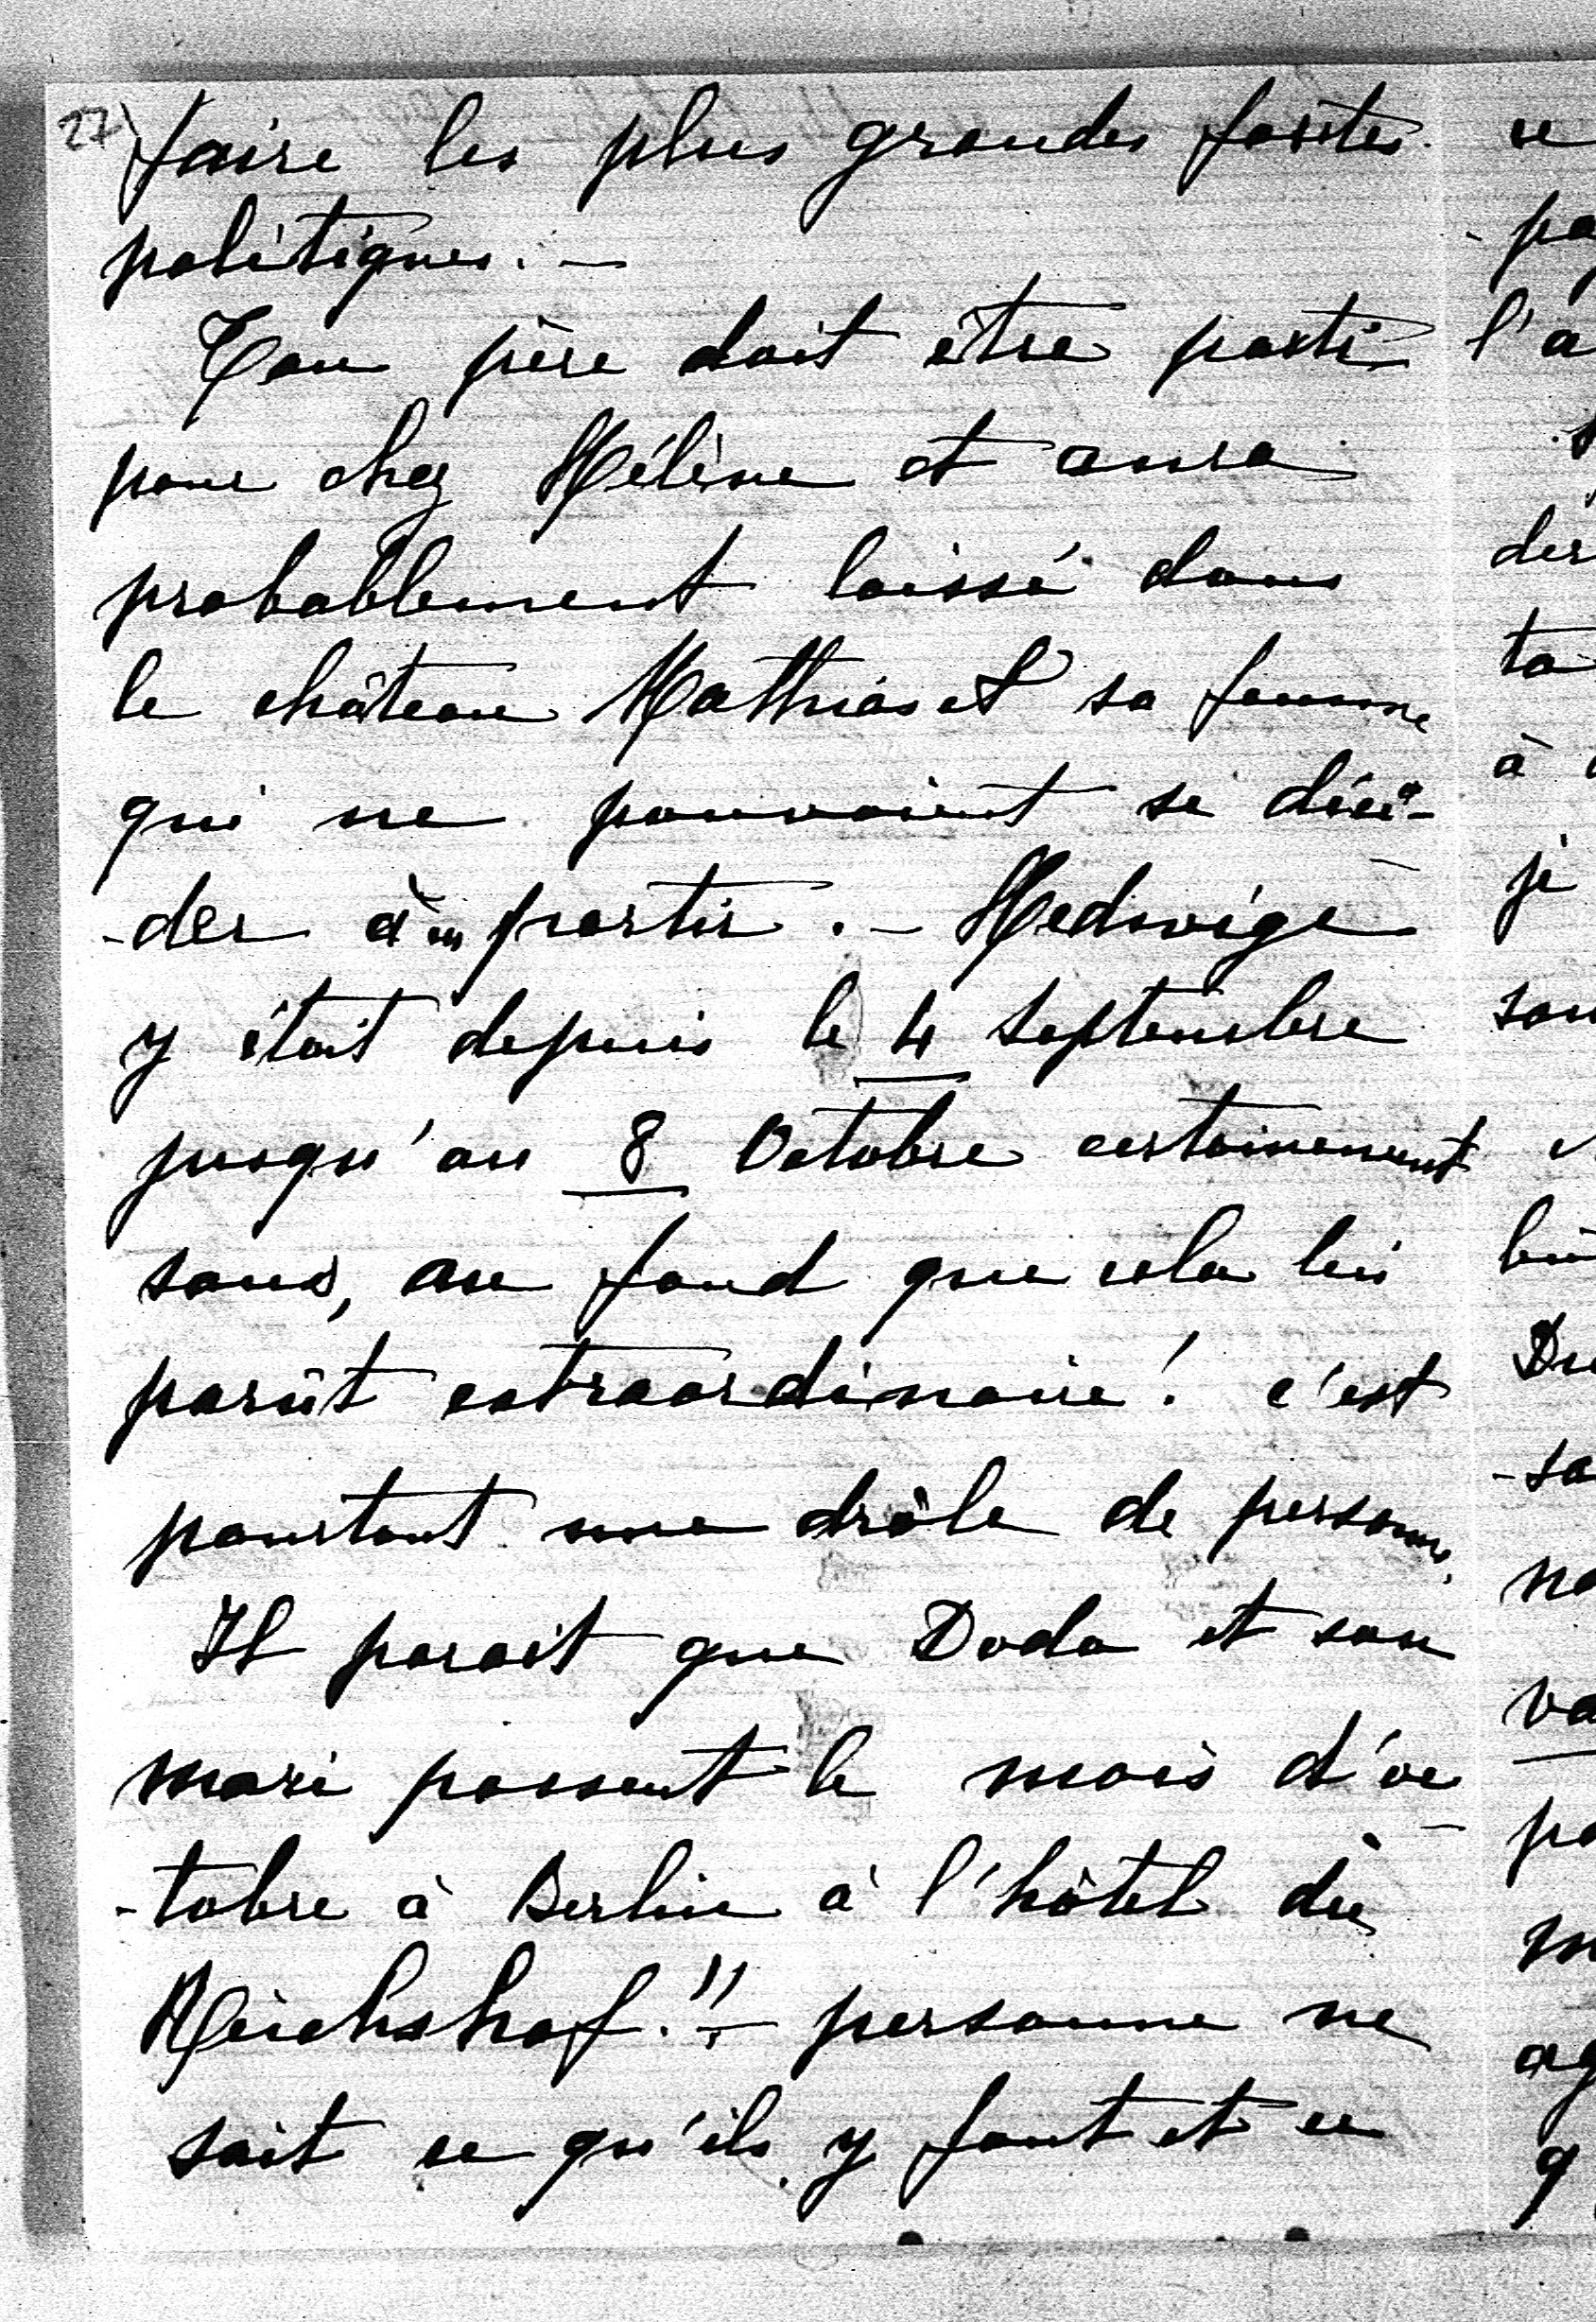 27)
faire les plus grandes fautes
politiques. —
Ton père doit être parti
pour chez Hélène et aura
probablement laissé dans
le château Mathias et sa femme
qui ne pouvaient se déci-
-der à en partir. — Hedwige
y était depuis le 4 Septembre
jusqu'au 8 Octobre certainement
sans, au fond que cela lui
parût extraordinaire! c'est
pourtant une drôle de personne.
Il parait que Doda et son
mari passent le mois d'oc-
-tobre à Berlin à l'hôtel du
Reichshof!! — personne ne
sait ce qu'ils y font et ce